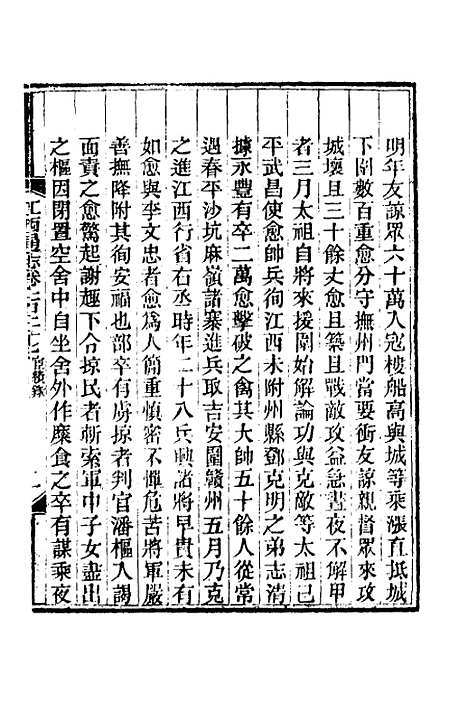 明年友諒眾六十萬入寇樓船高與城等乘漲直抵城
下圍數百重愈分守撫州門當要衝友諒親督眾來攻
城壞且三十餘丈愈且築且戰敵攻益急晝夜不解甲
者三月太祖自將來援圍始解論功與克敵等太祖已
平武昌使愈帥兵徇江西未附州縣鄧克明之弟志清
據永豐有卒二萬愈擊破之禽其大帥五十餘人從常
遇春平沙坑麻嶺諸寨進兵取吉安圍贛州五月乃克
之進江西行省右丞時年二十八兵興諸將早貴未有
如愈與李文忠者愈為人簡重慎密不憚危苦將軍嚴
善撫降附其徇安福也部卒有虜掠者判官潘樞入謁
面責之愈驚起謝趣下令掠民者斬索軍中子女盡出
之樞因閉置空舍中自坐舍外作糜食之卒有謀乘夜
江西通志卷一百二十七 宦績錄